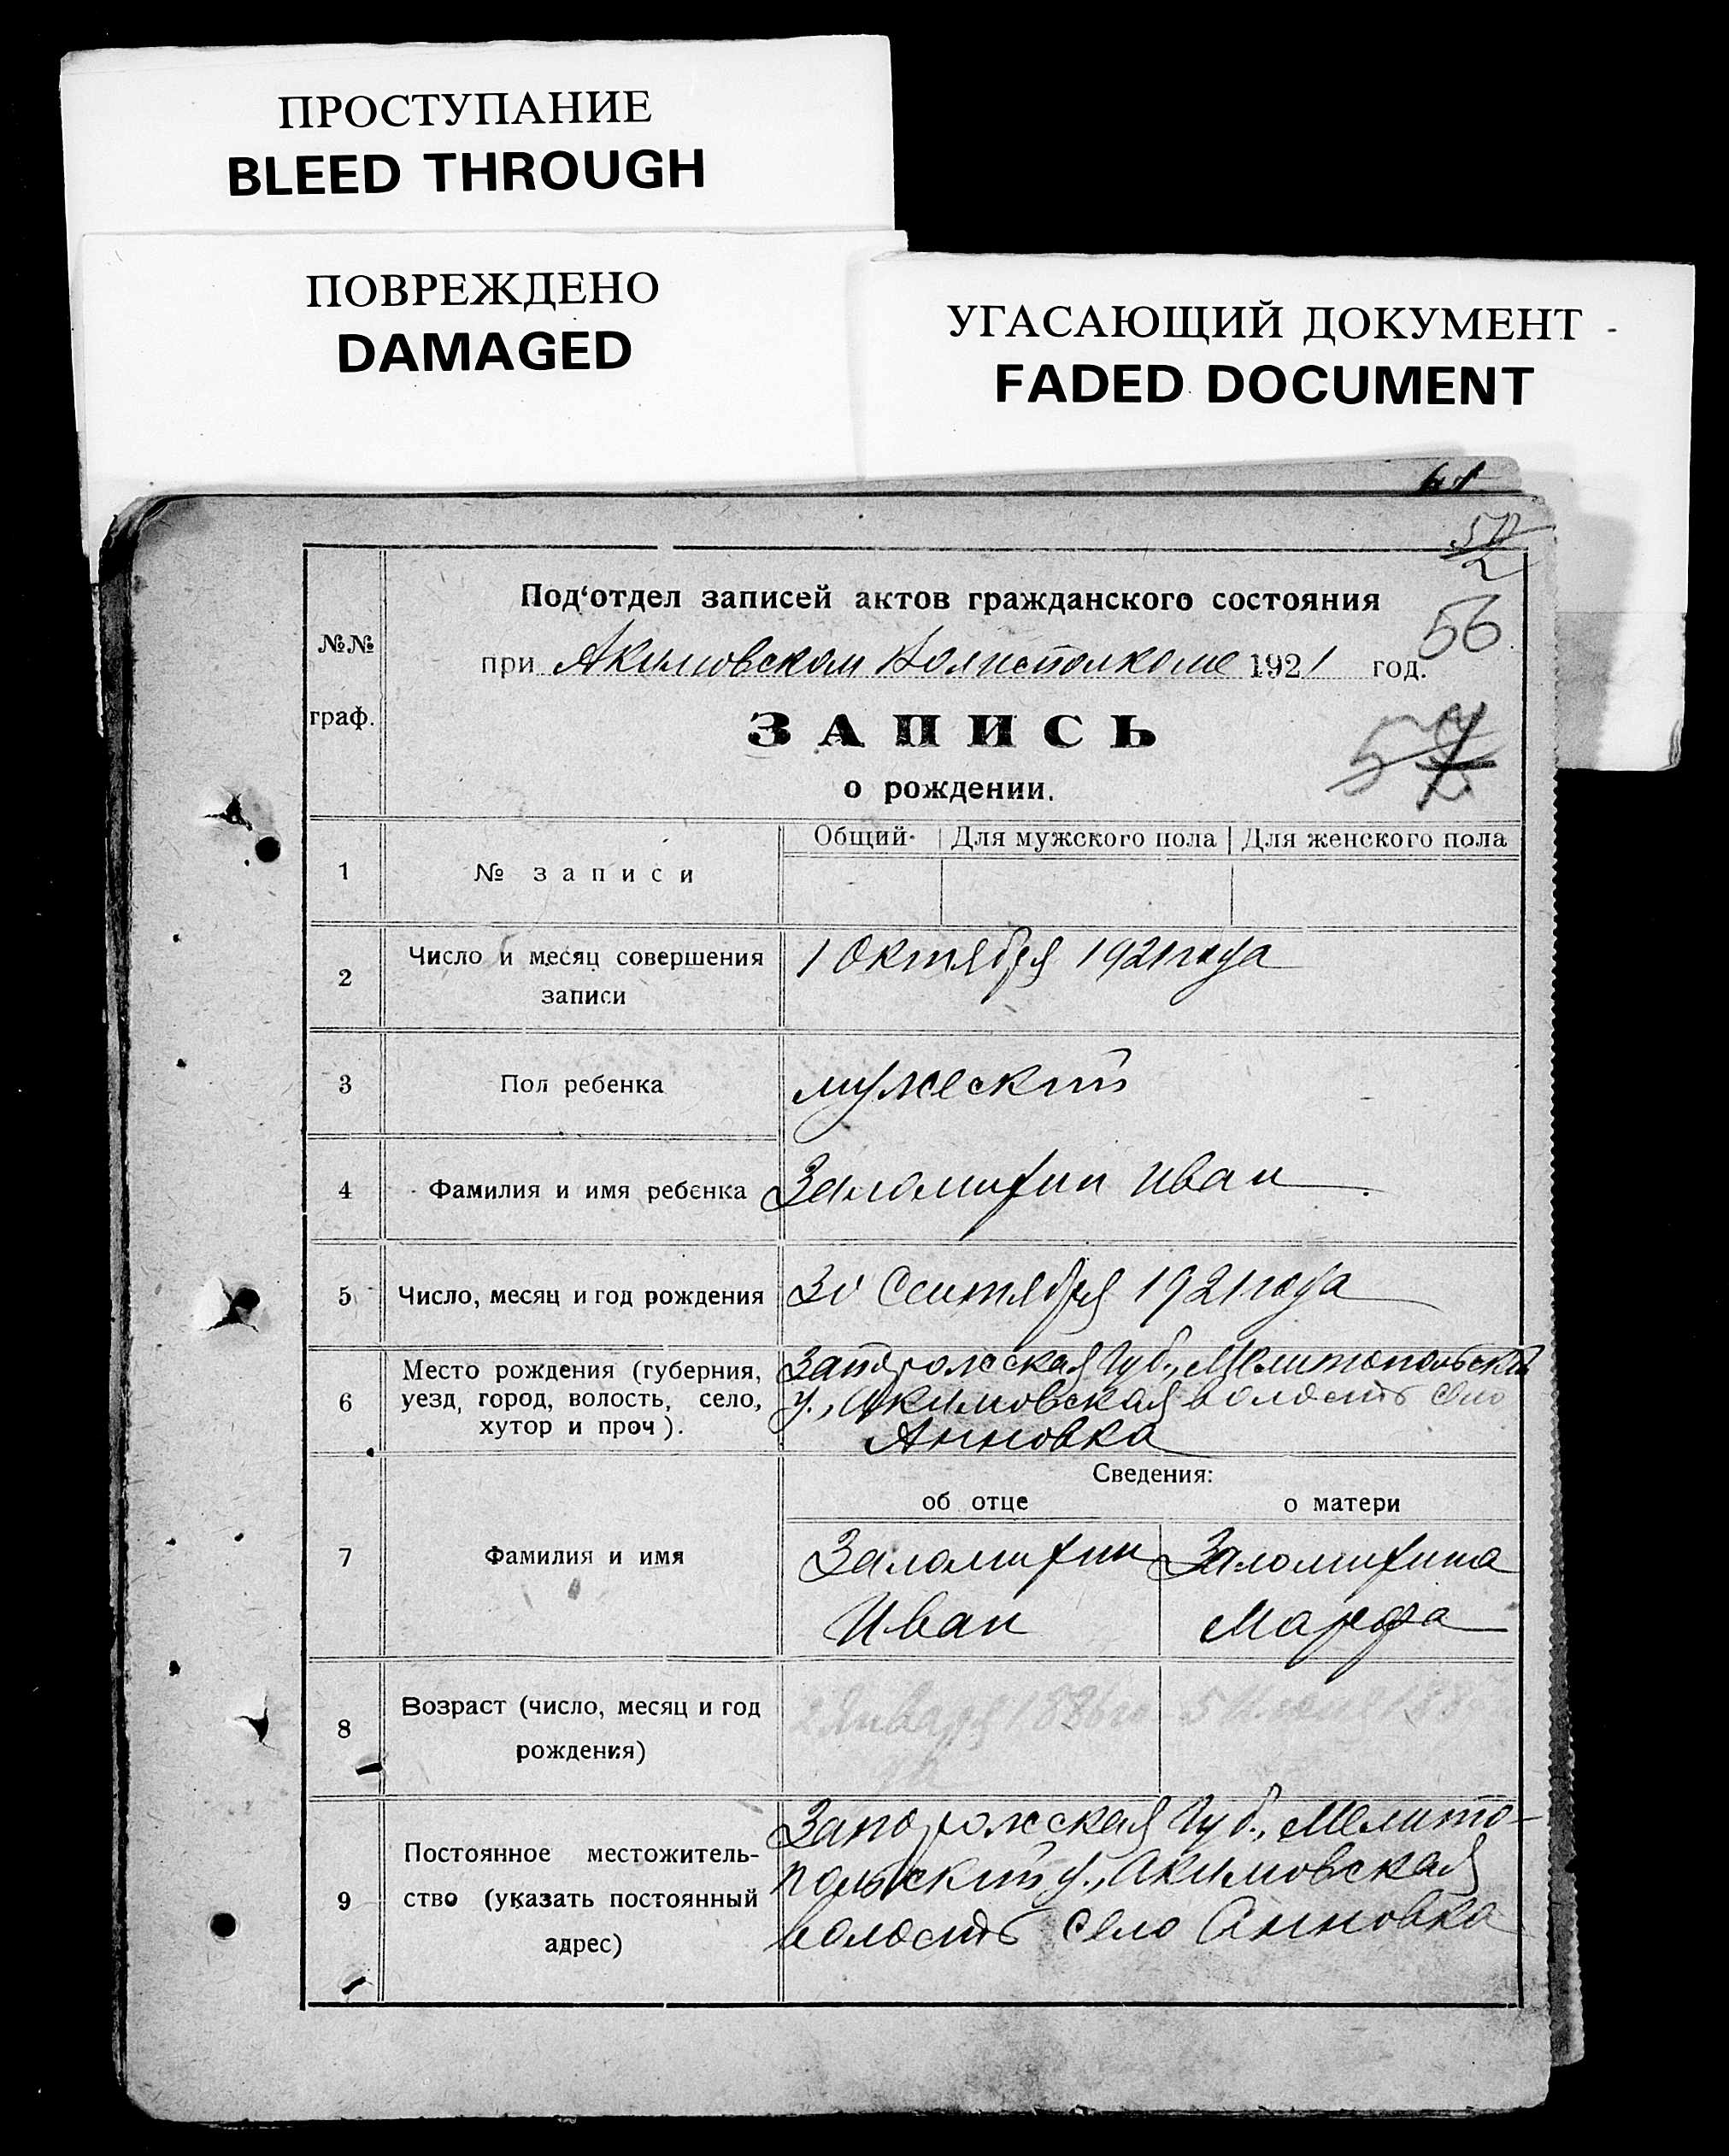 ПРОСТУПАНИЕ
BLEED THROUGH
ПОВРЕЖДЕНО
DAMAGED
УГАСАЮЩИЙ ДОКУМЕНТ
FADED DOCUMENT
56
№№
граф.
Под‘отдел записей актов гражданского состояния
при Акимовском Волисполкоме 1921 год.
ЗАПИСЬ
о рождении.
1 № записи Общий Для мужского пола Для женского пола
2 Число и месяц совершения
записи
1 Октября 1921 года
3 Пол ребенка мужеский
4 Фамилия и имя ребенка Заломихин Иван
5 Число, месяц и год рождения 30 Сентября 1921 года
6 Место рождения (губерния,
уезд, город, волость, село,
хутор и проч).
Запорожская Губ., Мелитопольский
у., Акимовская волость село
Анновка
Сведения:
об отце о матери
7 Фамилия и имя
Заломихин Заломихина
Иван Марфа
8 Возраст (число, месяц и год
рождения)
2 Января 1886 го-
да
9 Постоянное местожитель-
ство (указать постоянный
адрес)
Запорожская Губ., Мелито-
польский у., Акимовская
волость село Анновка